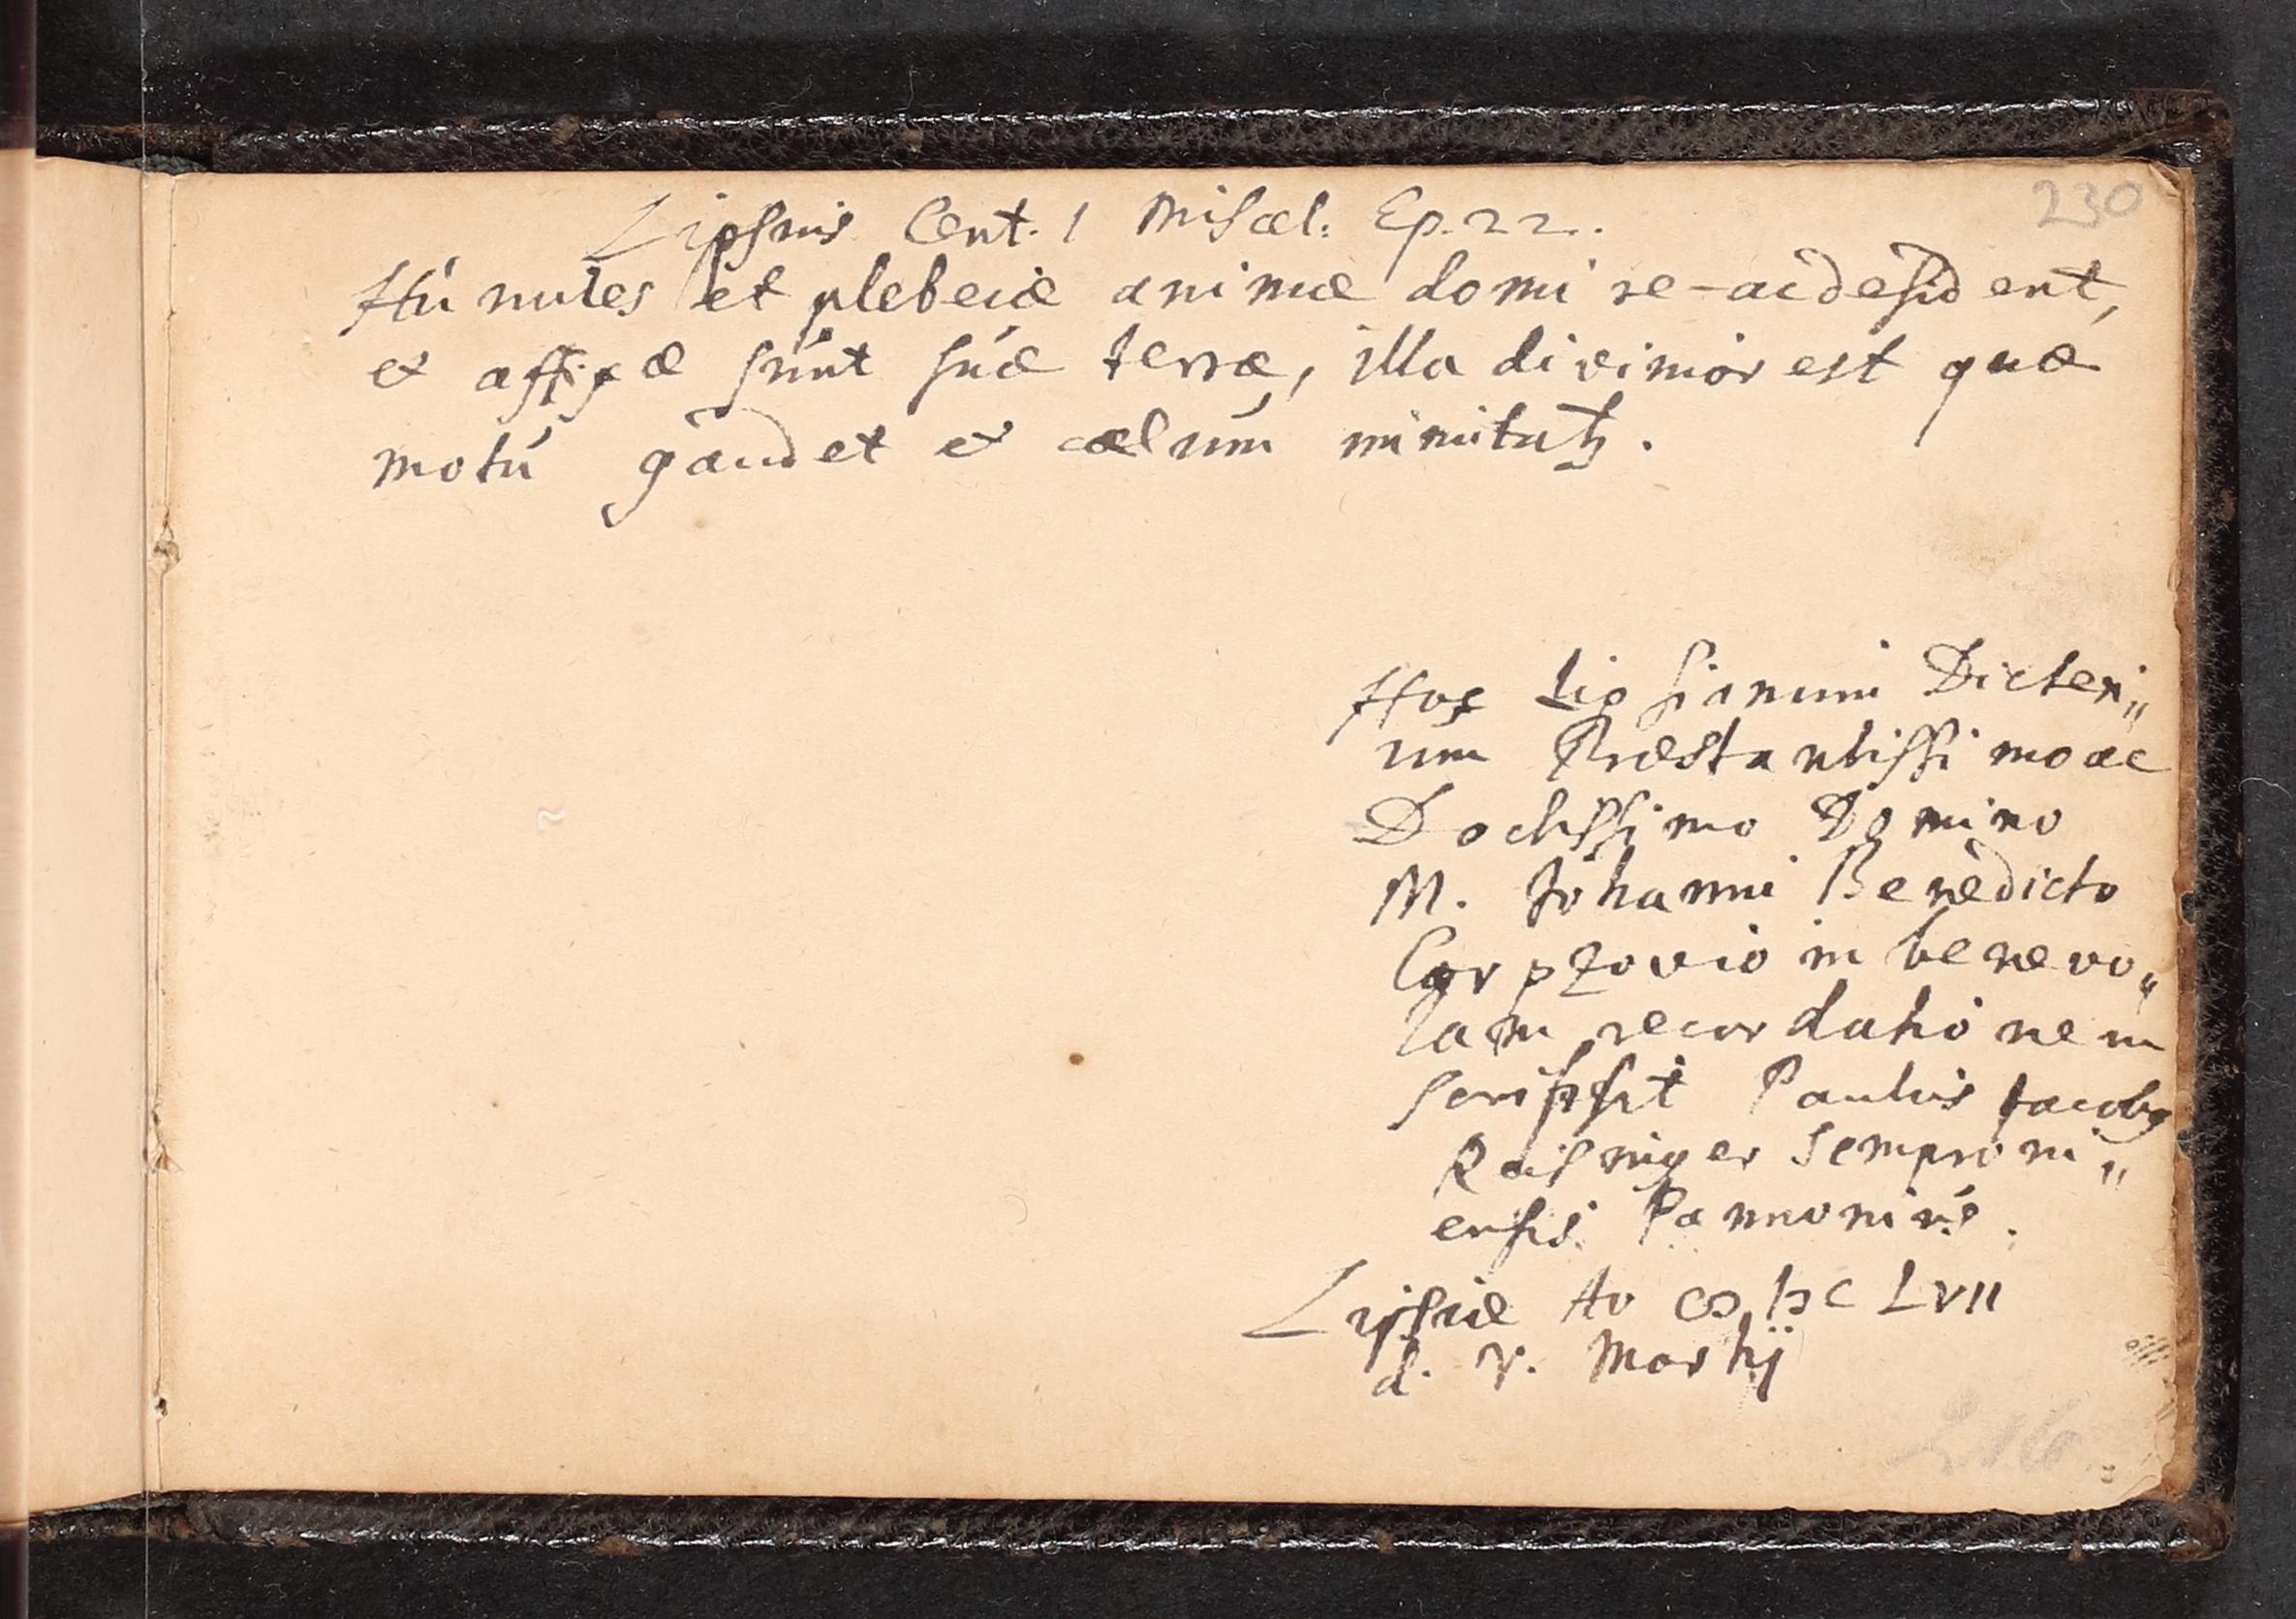 230
Lipsius Cent. 1 Miscel: Ep. 22.
Humiles et plebeiæ animæ domi re-acdesident,
et affixæ sunt suæ terræ, illa divinior est quæ
motú gaudet et cælum imitatꝫ.
Hoc Lipsianum Dicteri„
um Præstantissimo ac
Doctissimo Domino
M. Johanni Benedicto
Carpzovio in benevo„
lam recordationem
scripsit Paulus Jacobꝰ
Raisniger Semproni„
ensis Pannonius.
Lipsiæ Ao CIↃ IↃC LVII
d. V. Martij